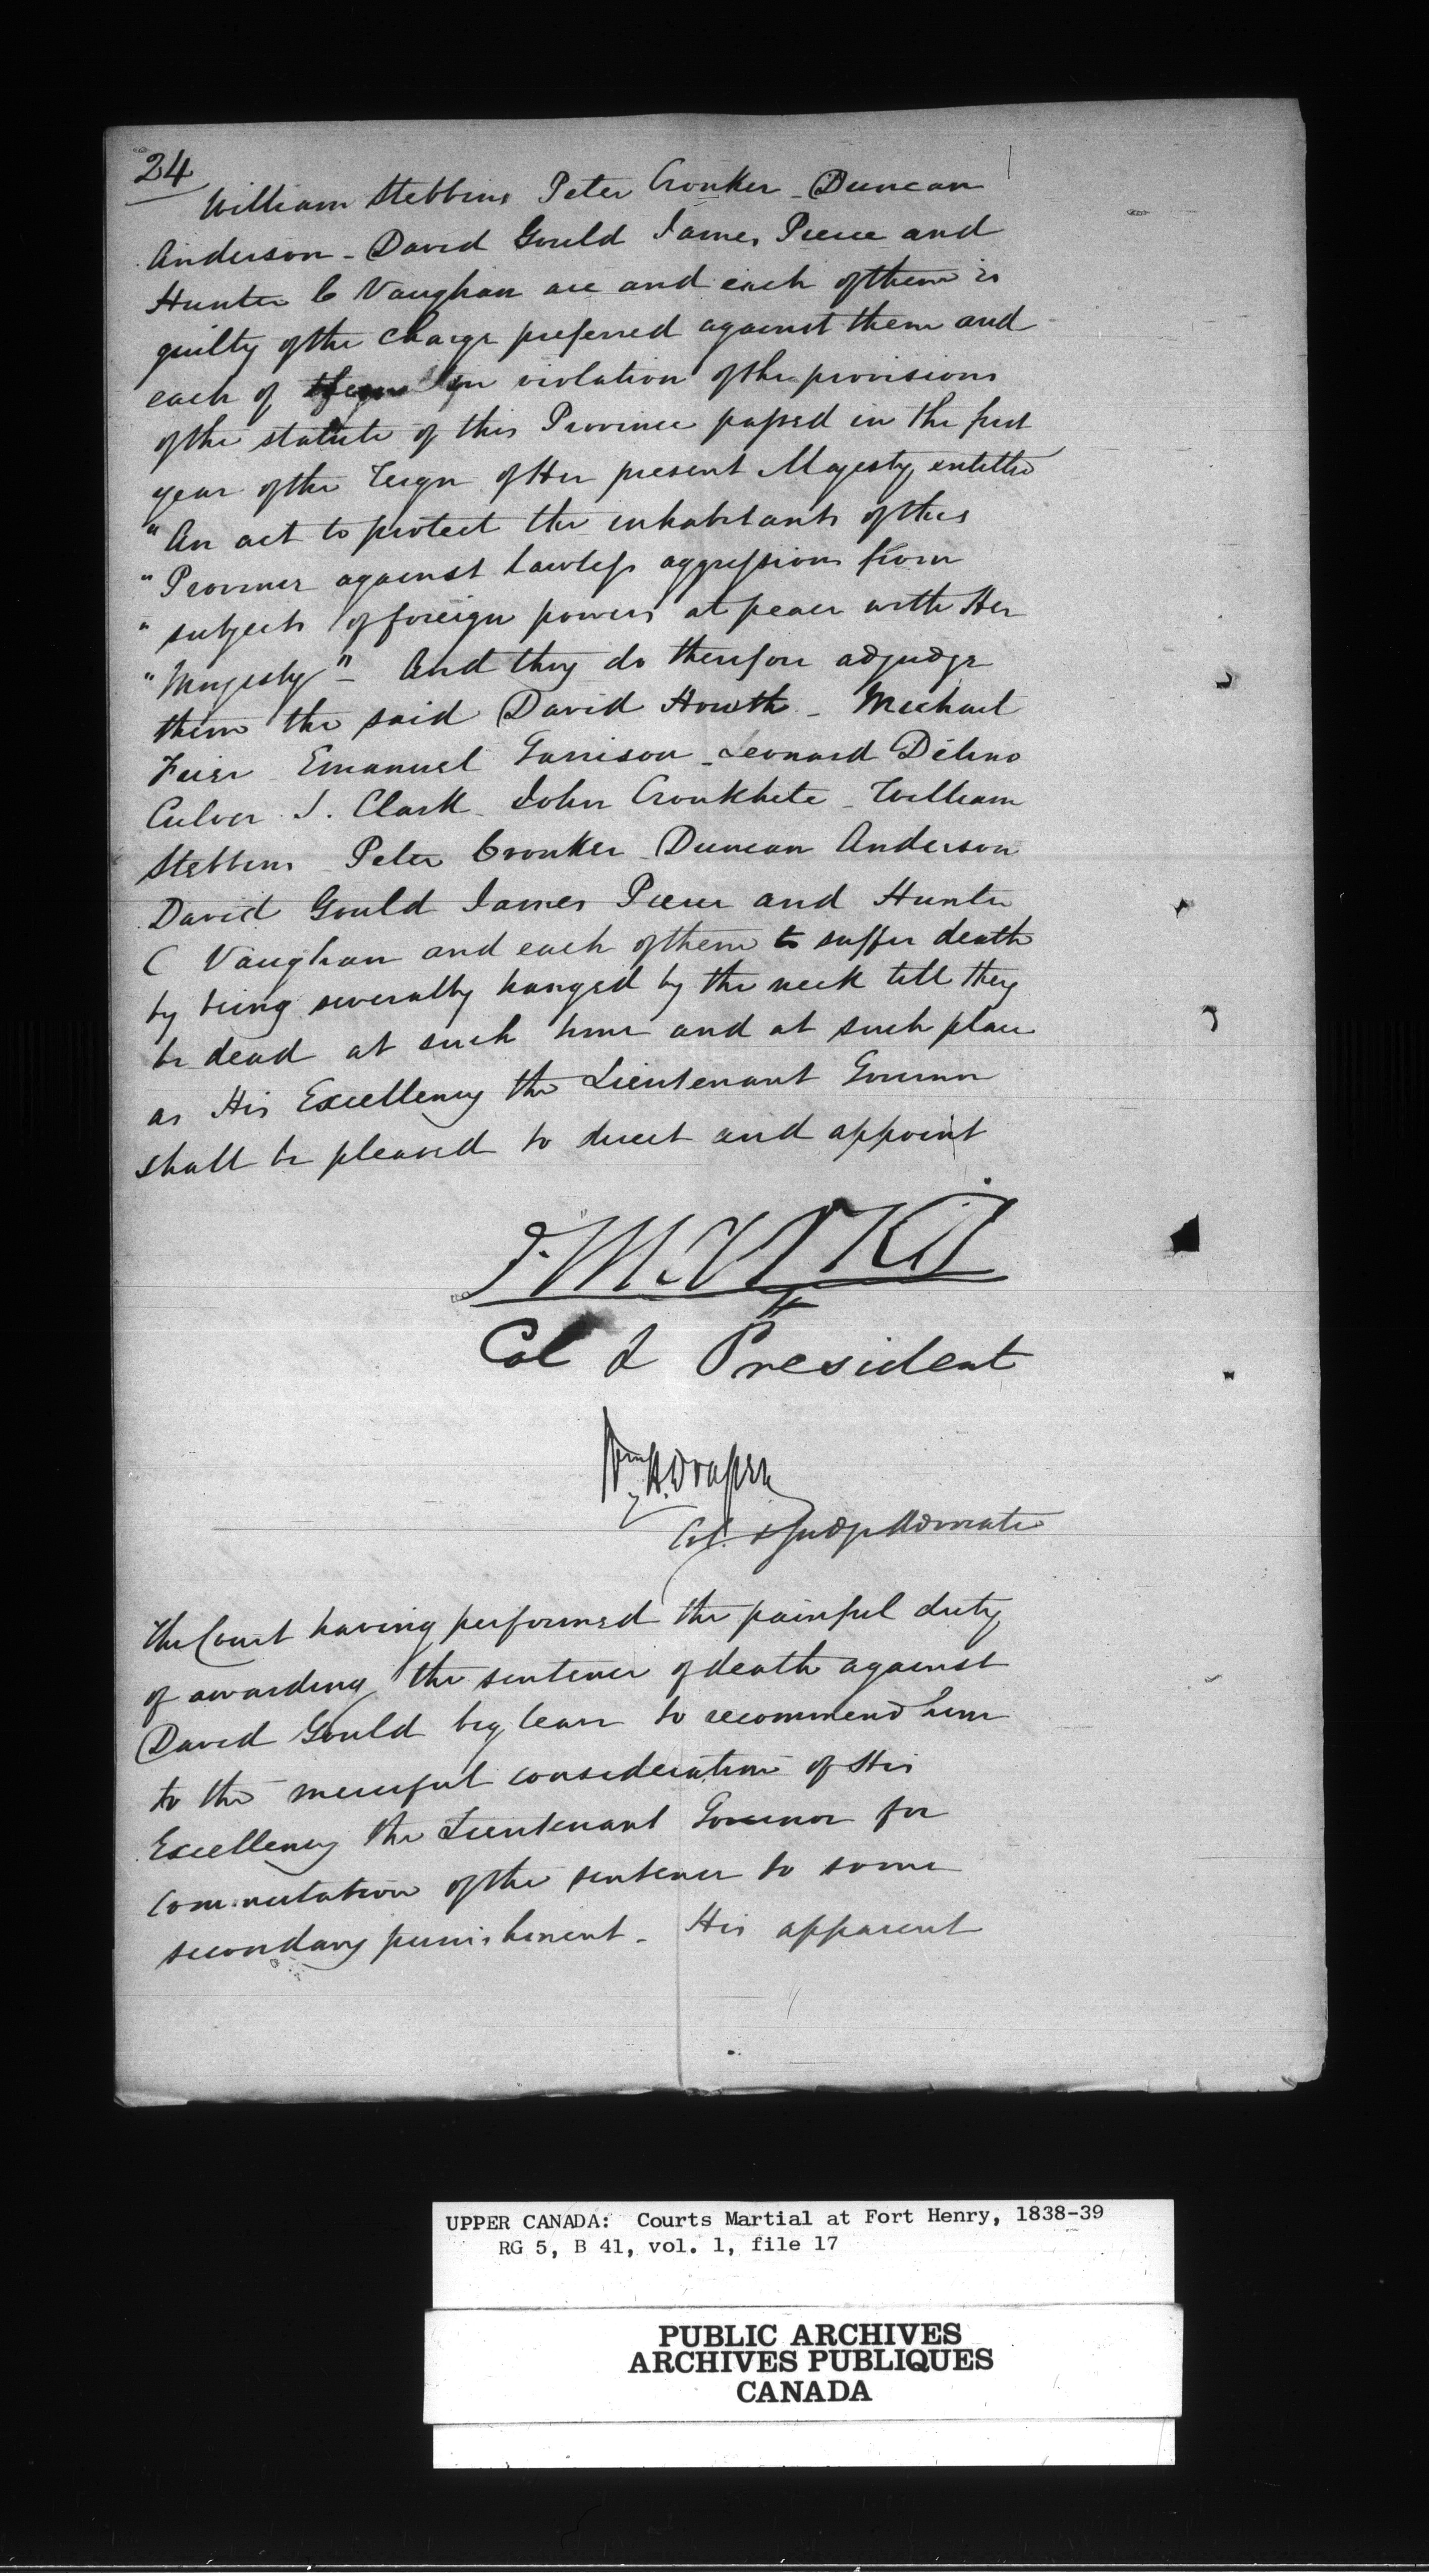 24
William Stebbins Peter Cronker - Duncan
Anderson - David Gould James Pierce and
Hunter C Vaughan are and each of them is
guilty of the charge preferred against them and
each of them in violation of the provisions
of the statute of this Province passed in the first
year of the Reign of Her present Majesty entitled
"An act to protect the inhabitants of this
"Province against Lawless aggressions from
"subjects of foreign powers at peace with Her
"Majesty" - And they do therefore adjudge
them the said David Howth - Michael
Emanuel Garrison - Leonard Delano
Culver S. Clark - John Cronkhite - William
Stebbins Peter Cronker - Duncan Anderson
David Gould James Pierce and Hunter
C Vaughan and each of them to suffer death
by being severally hanged by the neck till they
be dead at such time and at such place
as His Excellency the Lieutenant Governor
shall be pleased to direct and appoint
Col & President
Wm H. Draper
Col. & Judge Advocate
The Court having performed the painful duty
of awarding the sentence of death against
David Gould beg leave to recommend him
to the merciful consideration of His
Excellency the Lieutenant Governor for
commutation of the sentence to some
secondary punishment - His apparent
UPPER CANADA: Courts Martial at Fort Henry, 1838-39
RG 5, B 41, vol. 1, file 17
PUBLIC ARCHIVES
ARCHIVES PUBLIQUES
CANADA